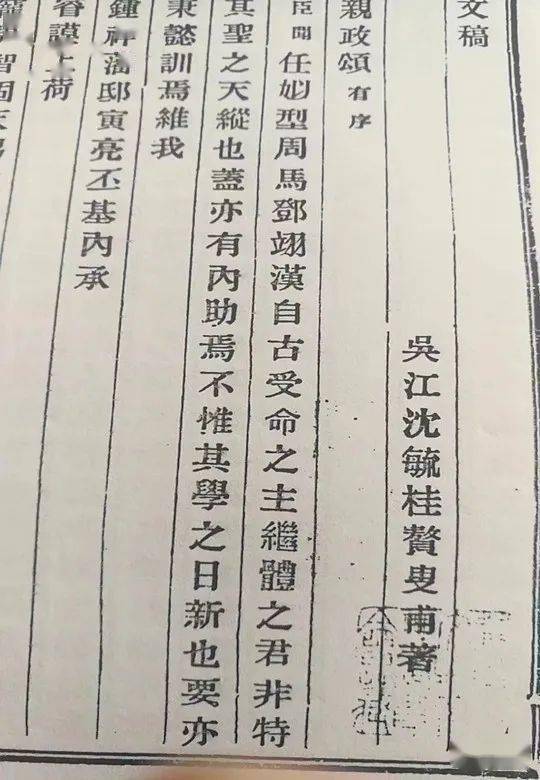 文稿
吳江沈毓桂贅叟甫著
親政頌有序
臣聞任姒型周馬鄧翊漢自古受命之主繼體之君非特
其聖之天縱也蓋亦有內助焉不惟其學之日新也要亦
秉懿訓焉維我
鍾神藩邸寅亮丕基內承
睿謨上荷
智固天